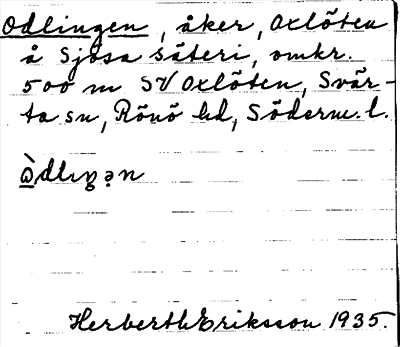 Odlingen, åker, Oxlöten
å Sjösa säteri, omkr.
500 m SV Oxlöten, Svär-
ta sn, Rönö hd, Söderm. l.
ὼdlıŋən
Herberth Eriksson 1935.